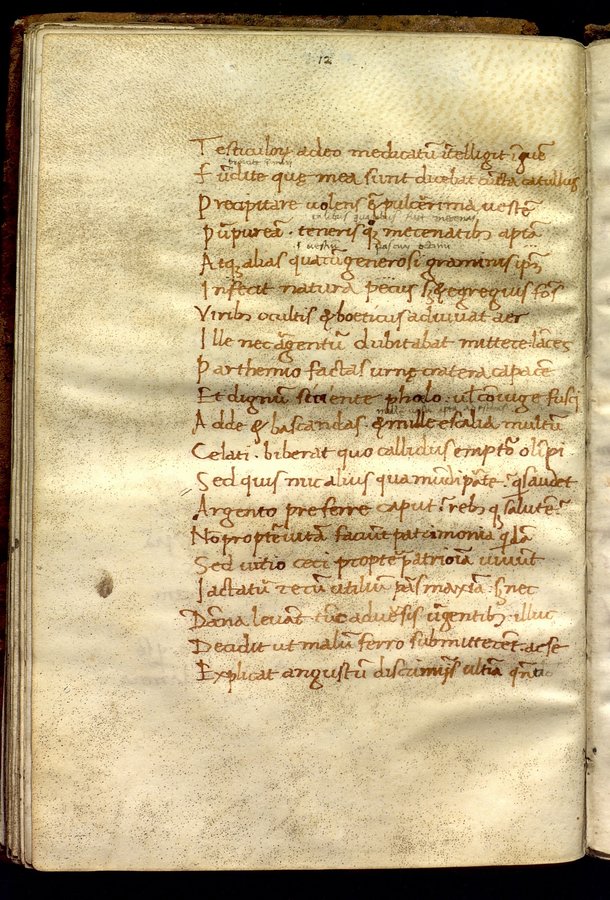 12
Testiculoꝝ adeo medicatū ītelligit īguē
Fūdite quę mea sunt dicebat cūcta catullus
Precipitare uolens ēt pulcērrima uestē
Pūpureā . teneris qꝫ mecenatibꝫ aptā
Atqꝫ alias quaꝝ generosi graminis ipm̄
Infecit natura pecus sꝫ & egregius fōs
Viribꝫ ocultis & boeticus adiuuat aer
Ille nec āgentū dubitabat mittere lāces
Parthenio factas urnę cratera capacē
Et dignū sitiente pholo . ul' cōiuge fusci
Adde & bascandas . & mille escalia multū
Celati . biberat quo callidus emptōr olīpi
Sed quis nūc alius qua mūdi pārte . qs audet
Argento preferre caput ? rebꝫ qꝫ salutē ?
Nō propter uitā faciūt patrimonia qdā
Sed uitio ceci propter patrioīa uiuūt
Iactatū rerū utiliū pars maxīa . sꝫ nec
Dāna leuāt tūc aduersis ūgentibꝫ illuc
Decidit ut malū ferro submitteret ac se
Explicat angustū discriminis ultīa qn̄